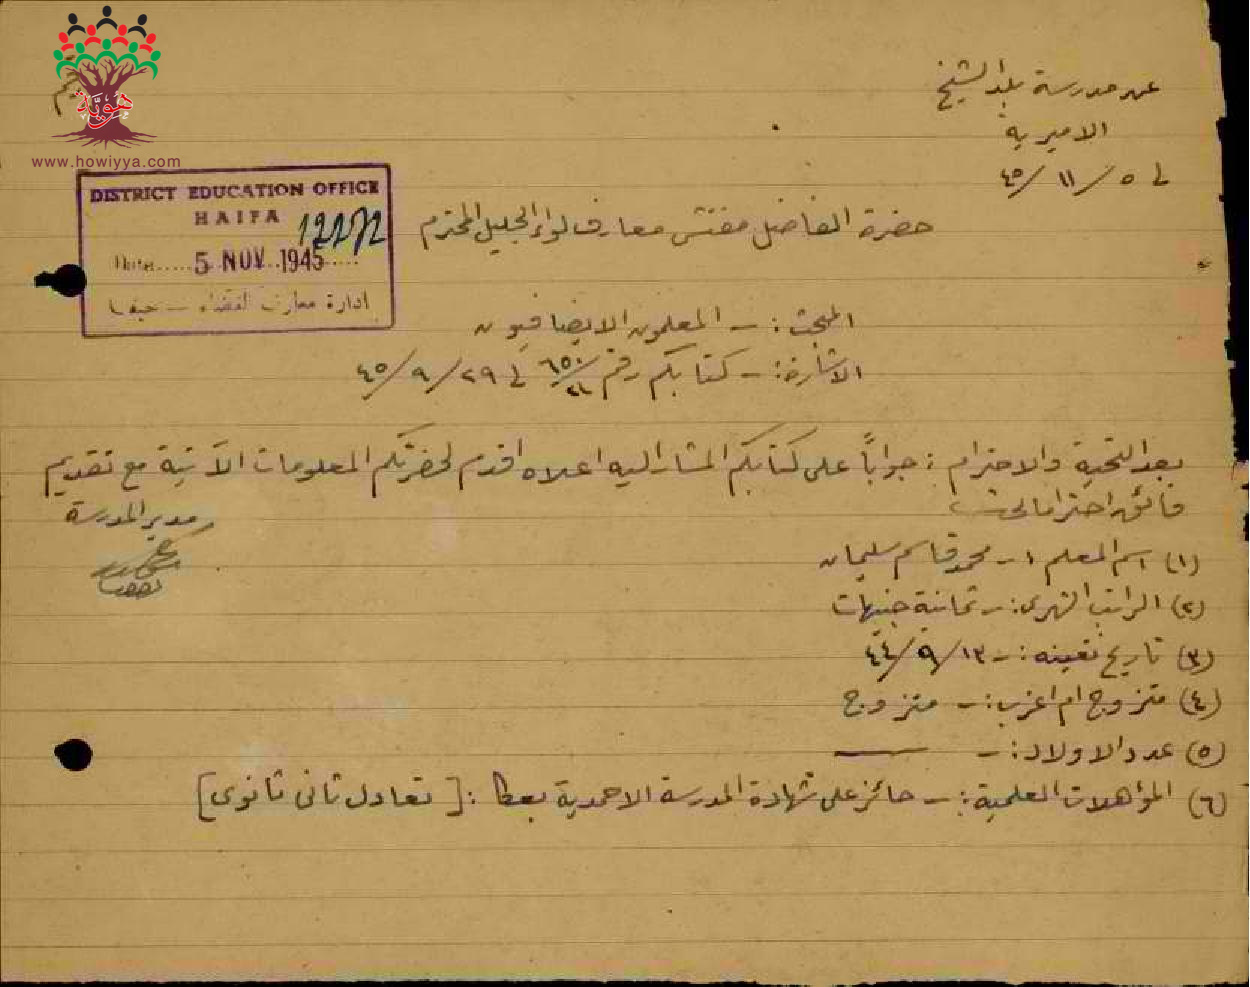 هوية
www.howiyya.com
عن مدرسة بلد الشيخ
الاميرية
في ٥ / ١١ / ٤٥
DISTRICT EDUCATION OFFICE
HAIFA
Date..... 5 NOV 1945 .....
ادارة معارف القضاء — حيفا
حضرة الفاضل مفتش معارف لواء الجليل المحترم
المبحث :- المعلمون الاضافيون
الاشارة :- كتابكم رقم في ٢٩ / ٩ / ٤٥
بعد التحية والاحترام : جواباً على كتابكم المشار اليه اعلاه اقدم لحضرتكم المعلومات الآتية مع تقديم
فائق احتراماتي
مدير المدرسة
(١) اسم المعلم :- محمد قاسم سليمان
(٢) الراتب الشهري :- ثمانية جنيهات
(٣) تاريخ تعيينه :- ١٣ / ٩ / ٤٤
(٤) متزوج ام اعزب :- متزوج
(٥) عدد الاولاد :- —
(٦) المؤهلات العلمية :- حائز على شهادة المدرسة الاحمدية بعكا : [ تعادل ثاني ثانوي ]